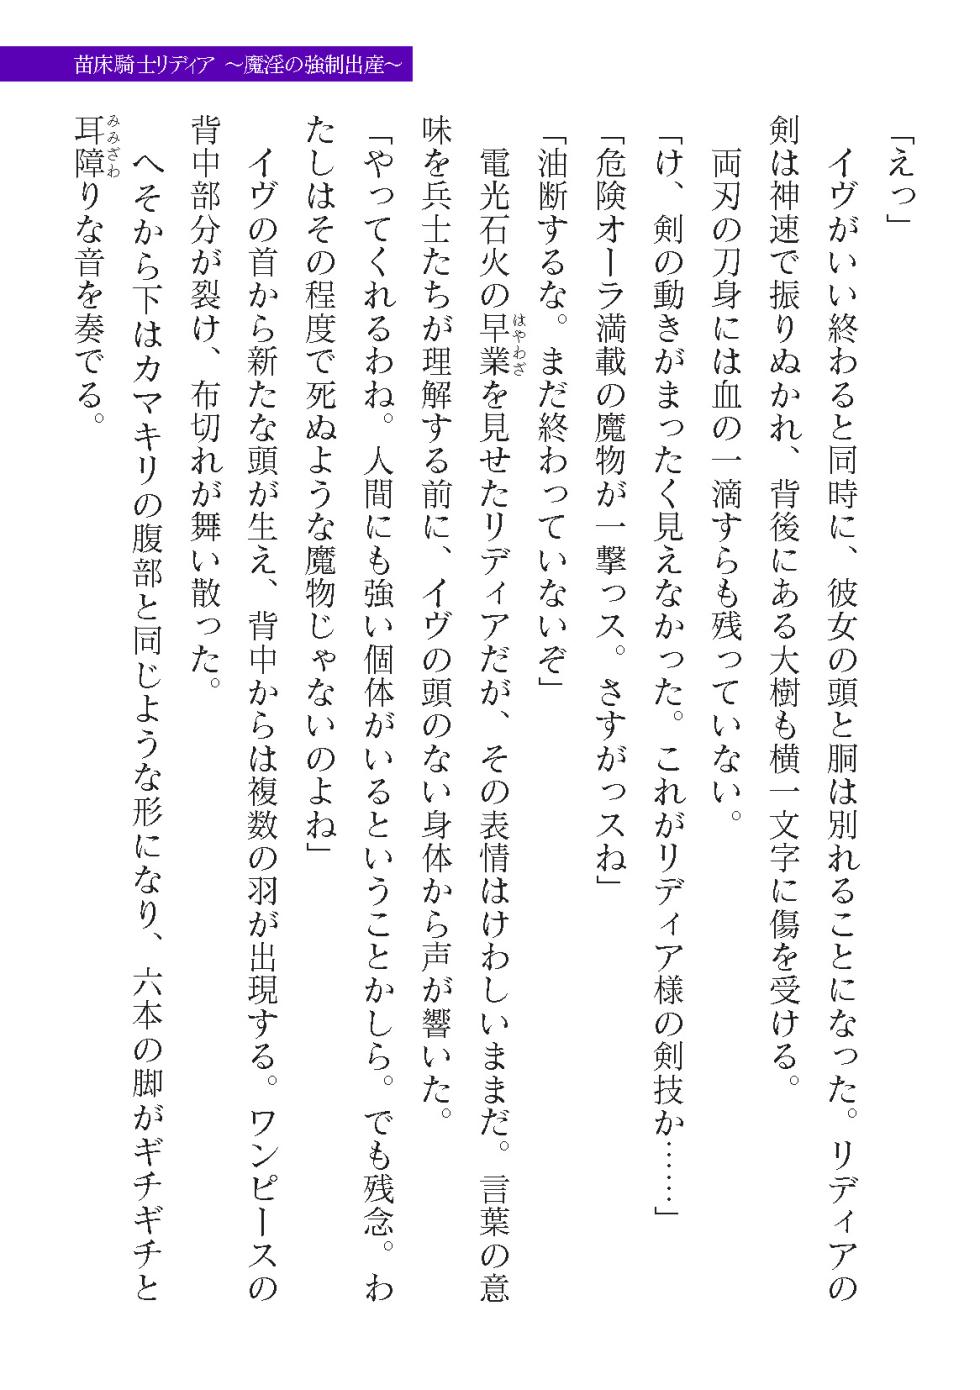 苗床騎士リディア ～魔淫の強制出産～
「えっ」
イヴがいい終わると同時に、彼女の頭と胴は別れることになった。リディアの
剣は神速で振りぬかれ、背後にある大樹も横一文字に傷を受ける。
両刃の刀身には血の一滴すらも残っていない。
「け、剣の動きがまったく見えなかった。これがリディア様の剣技か……」
「危険オーラ満載の魔物が一撃っス。さすがっスね」
「油断するな。まだ終わっていないぞ」
電光石火の早業を見せたリディアだが、その表情はけわしいままだ。言葉の意
はやわざ
味を兵士たちが理解する前に、イヴの頭のない身体から声が響いた。
「やってくれるわね。人間にも強い個体がいるということかしら。でも残念。わ
たしはその程度で死ぬような魔物じゃないのよね」
イヴの首から新たな頭が生え、背中からは複数の羽が出現する。ワンピースの
背中部分が裂け、布切れが舞い散った。
へそから下はカマキリの腹部と同じような形になり、六本の脚がギチギチと
耳障りな音を奏でる。
みみざわ